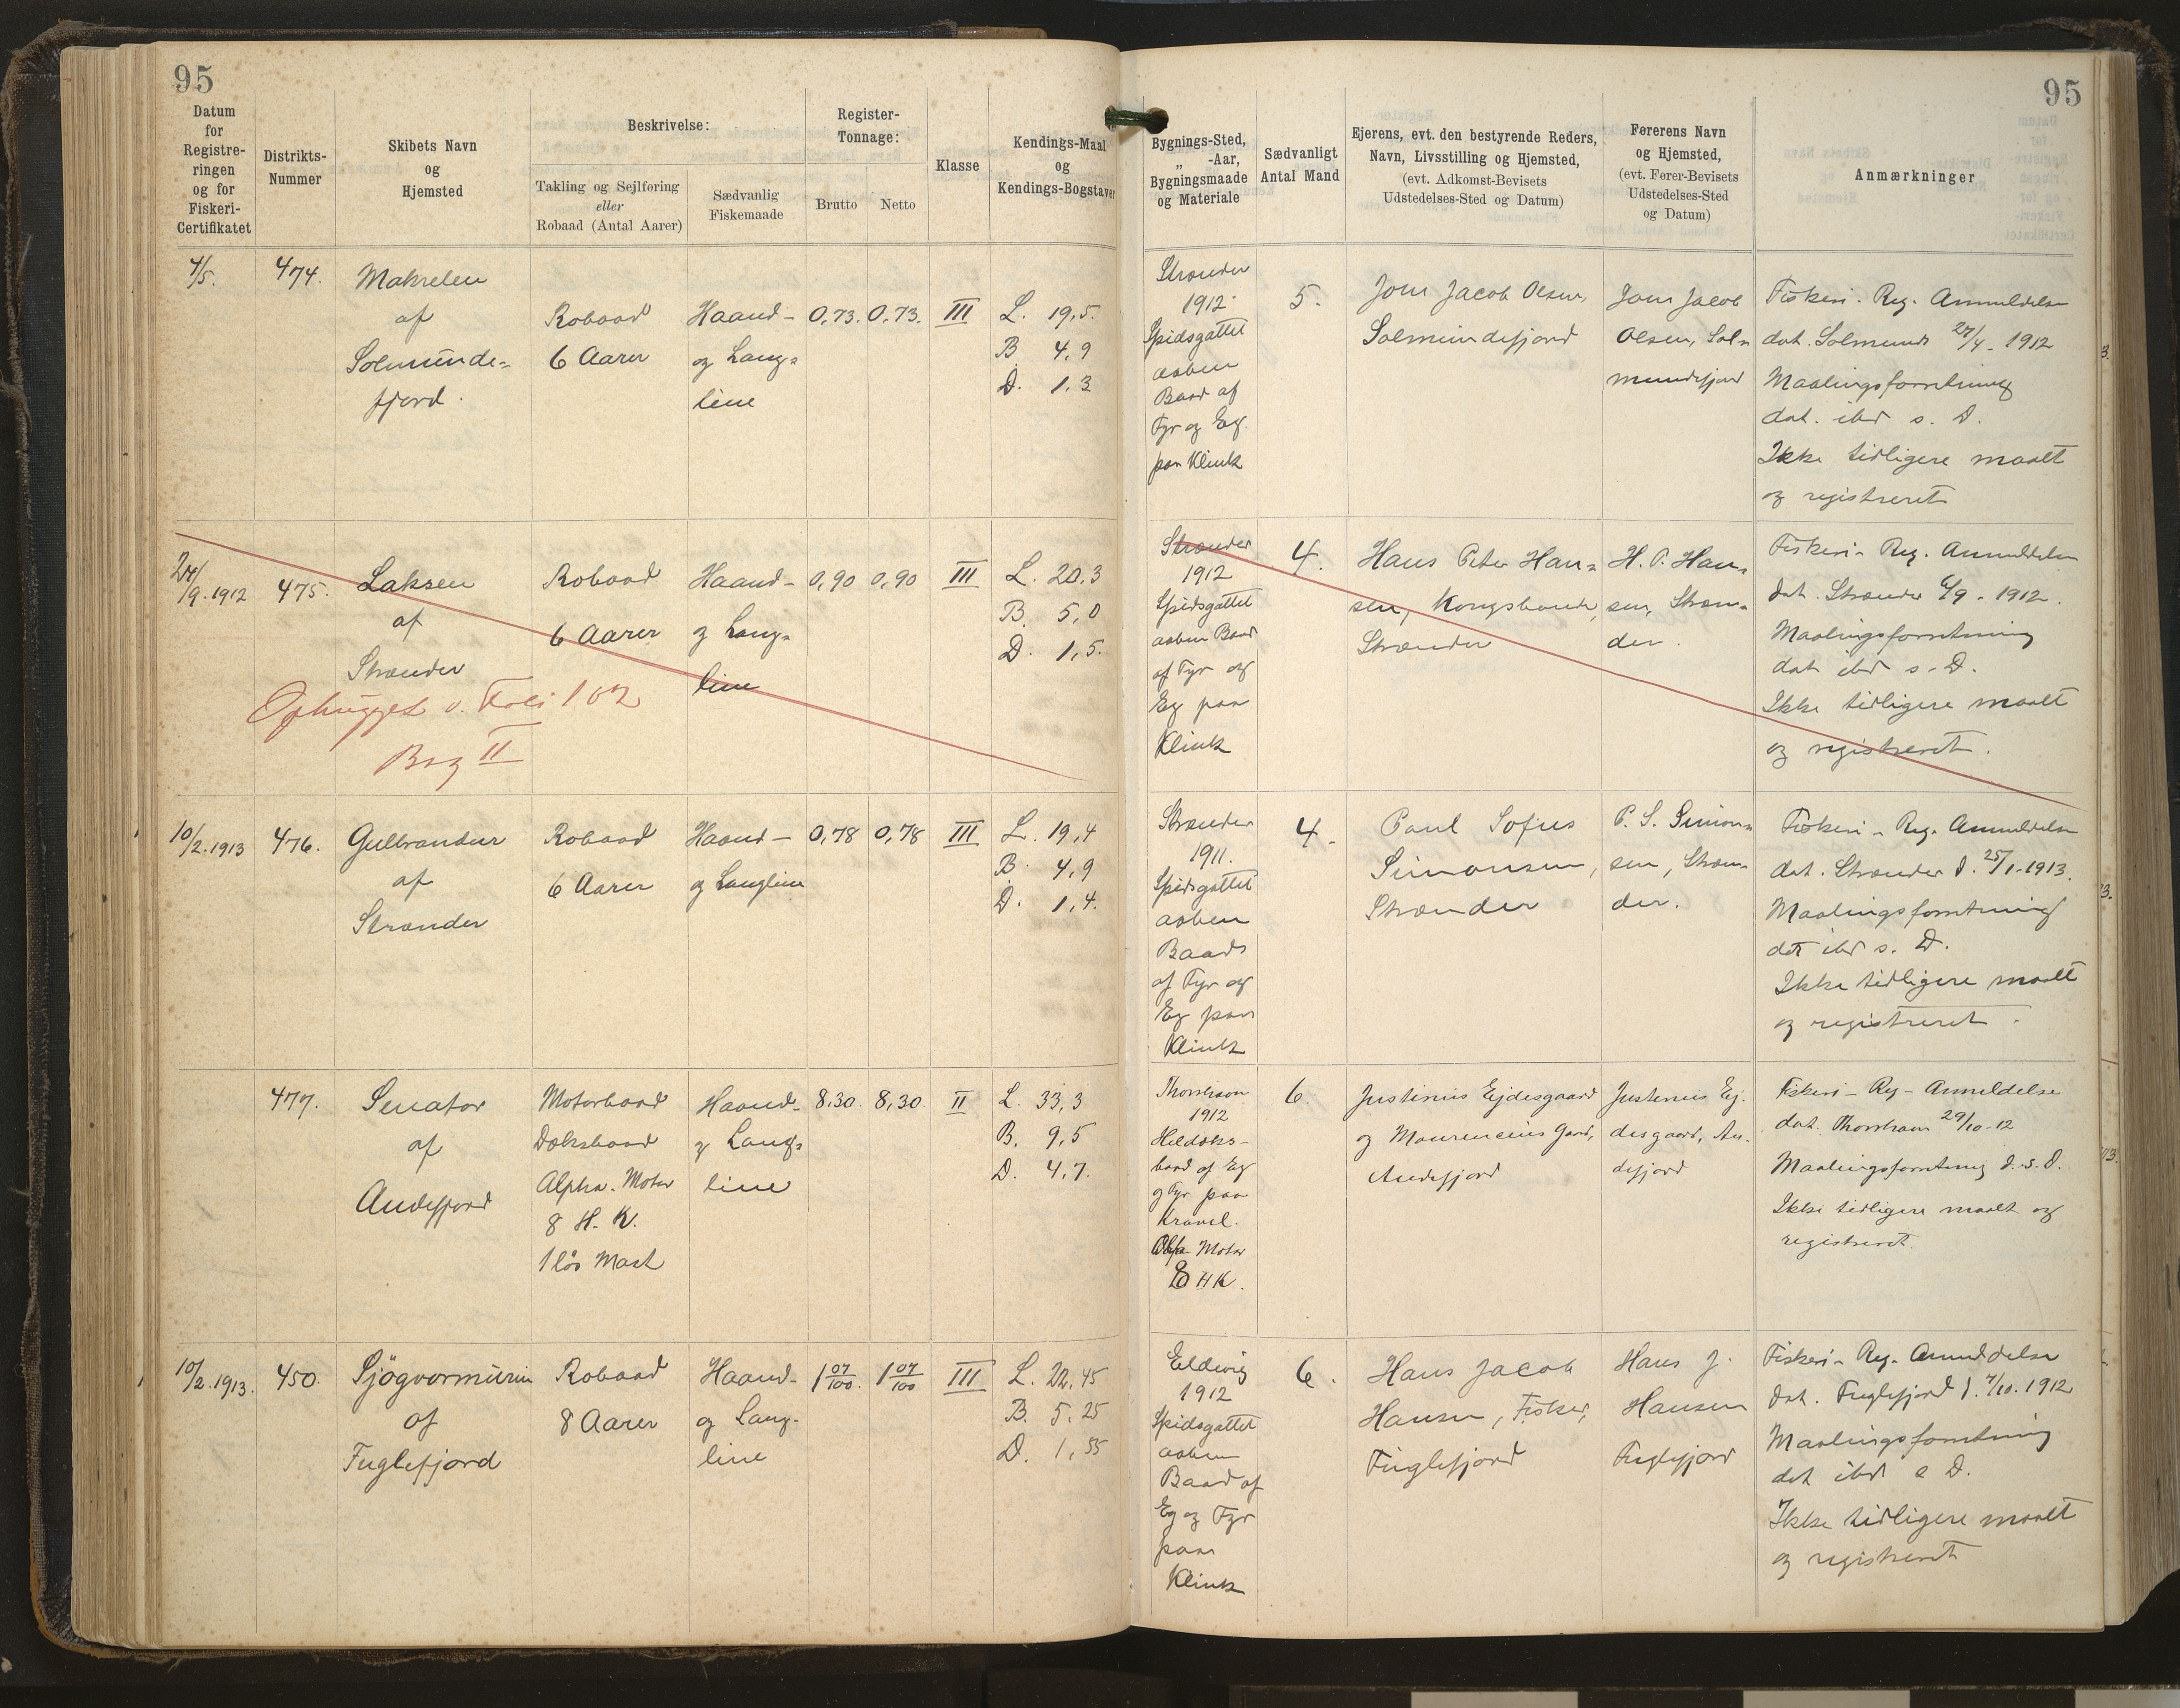 95
95
Datum
for
Registre-
ringen
og for
Fiskeri-
Certifikatet
Distrikts-
Nummer
Skibets Navn
og
Hjemsted
Beskrivelse:
Takling og Sejlføring
eller
Robaad (Antal Aarer)
Sædvanlig
Fiskemaade
Register-
Tonnage:
Brutto
Netto
Klasse
Kendings-Maal
og
Kendings-Bogstaver
Bygnings-Sted,
„ -Aar,
Bygningsmaade
og Materiale
Sædvanligt
Antal Mand
Ejerens, evt. den bestyrende Reders,
Navn, Livsstilling og Hjemsted,
(evt. Adkomst-Bevisets
Udstedelses-Sted og Datum)
Førerens Navn
og Hjemsted,
(evt. Fører-Bevisets
Udstedelses-Sted
og Datum)
Anmærkninger
4/5.
474.
Makrelen
af
Solmunde-
fjord.
Robaad
6 Aarer
Haand-
og Lang-
line
0,73.
0,73.
III
L. 19,5.
B 4,9
D. 1,3
Strænder
1912
Spidsgattet
aaben
Baad af
Fyr og Eg
paa Klink
5.
Joen Jacob Olsen,
Solmundefjord
Joen Jacob
Olsen, Sol-
mundefjord
Fiskeri-Reg. Anmeldelse
dat. Solmund 27/4 - 1912
Maalingsforretning
dat. ibd s. D.
Ikke tidligere maalt
og registreret
24/9.1912
475.
Laksen
af
Strænder
Robaad
6 Aarer
Haand-
og Lang-
line
0,90
0,90
III
L. 20,3
B. 5,0
D. 1,5.
Ophugget v. Foli 102
Bog II
Strænder
1912
Spidsgattet
aaben Baad
af Fyr og
Eg paa
Klink
4.
Hans Peter Han-
sen, Kongsbonde,
Strænder
H. P. Han-
sen, Stræn-
der.
Fiskeri-Reg. Anmeldelse
dat. Strænder 6/9 - 1912.
Maalingsforretning
dat ibd s. D.
Ikke tidligere maalt
og registreret.
10/2.1913
476.
Gulbrandur
af
Strænder
Robaad
6 Aarer
Haand-
og Langline
0,78
0,78
III
L. 19,4
B. 4,9
D. 1,4.
Strænder
1911.
Spidsgattet
aaben
Baad
af Fyr og
Eg paa
Klink
4.
Poul Sofus
Simonsen,
Strænder
P. S. Simon-
sen, Stræn-
der.
Fiskeri-Reg. Anmeldelse
dat. Strænder d. 25/1-1913.
Maalingsforretning
dat ibd s. D.
Ikke tidligere maalt
og registreret.
477.
Senator
af
Andefjord
Motorbaad
Dæksbaad
Alpha-Motor
8 H. K.
1 løs Mast
Haand-
og Lang-
line
8,30.
8,30.
II
L. 33,3
B. 9,5
D. 4,7.
Thorshavn
1912
Heldæks-
baad af Eg
og Fyr paa
Kravel.
Alfa Motor
8 HK.
6.
Justinus Ejdesgaard
og Maurencius Gaard,
Andefjord
Justinus Ej-
desgaard, An-
defjord
Fiskeri-Reg-Anmeldelse
dat. Thorshavn 29/10-12
Maalingsforretning d. s. D.
Ikke tidligere maalt og
registreret.
10/2.1913.
450.
Sjögvormurin
af
Fuglefjord
Robaad
8 Aarer
Haand-
og Lang-
line
1 07/100.
1 07/100
III
L. 22,45
B. 5,25
D. 1,55
Eldevig
1912
Spidsgattet
aaben
Baad af
Eg og Fyr
paa
Klink
6.
Hans Jacob
Hansen, Fisker,
Fuglefjord
Hans J.
Hansen
Fuglefjord
Fiskeri-Reg-Anmeldelse
dat. Fuglefjord d. 7/10.1912
Maalingsforretning
dat ibd s D.
Ikke tidligere maalt
og registreret